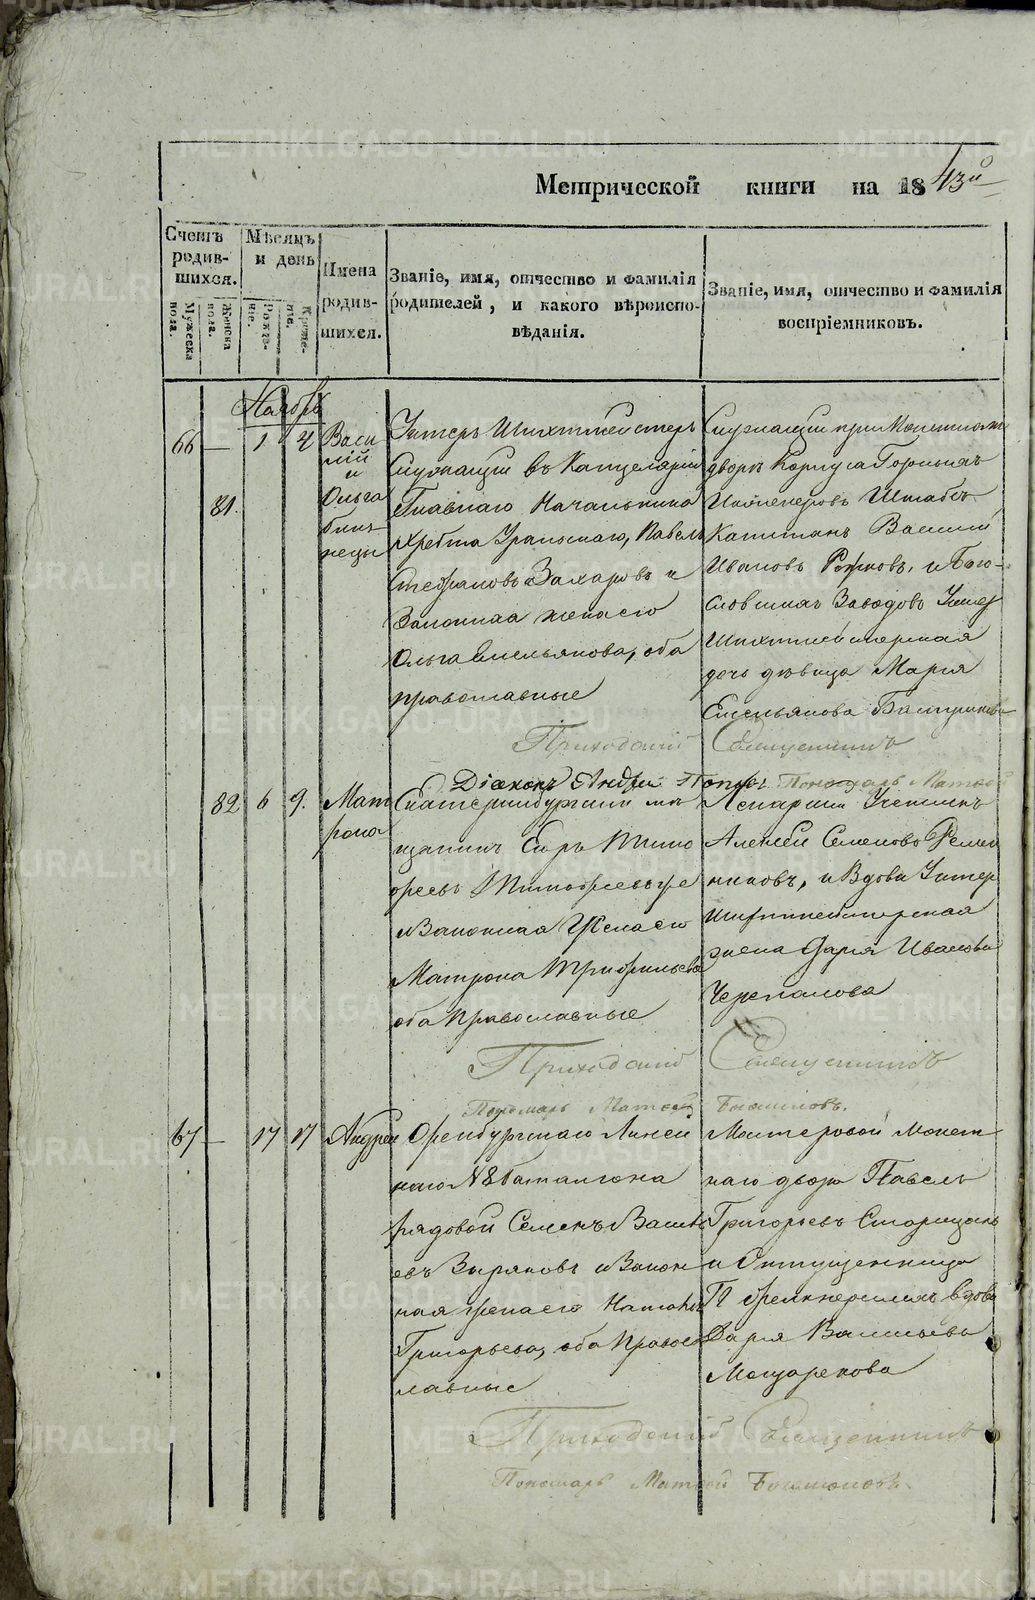 METRIKI.GASO-URAL.RU
Метрической книги на 1843й
Счетъ родив-шихся.
Мужеска пола.
Женска пола.
Мѣсяцъ и день
Рожде-ніе.
Креще-ніе.
Имена родив-шихся.
Званіе, имя, отчество и фамилія родителей, и какого вѣроиспо-вѣданія.
Званіе, имя, отчество и фамилія воспріемниковъ.
Ноябрь
66 — 1 4
81.
Васи
лій
и
Ольга
близ
нецы
Унтеръ Шихтмейстеръ
Служащій въ Канцеляріи
Главнаго Начальника
Хребта Уральскаго, Павелъ
Стефановъ Захаровъ и
Законная жена его
Ольга Емельянова, оба
православные
Служащій при Монетномъ
дворѣ Корпуса Горныхъ
Инженеровъ Штабсъ
Капитанъ Василій
Ивановъ Рожковъ, и Бого-
словскихъ Заводовъ Унтер
Шихтмейстерская
дочь дѣвица Марія
Емельянова
Приходскій Священникъ
Діаконъ Андрей Попов. Пономарь Матвей
82 6 9.
Мат
рона
Екатеринбургскій мѣ
щанинъ Егоръ Тимо
феевъ и
Законная Жена его
Матрона
оба православные
Лекарскій Ученикъ
Алексей Семеновъ
никовъ, и Вдова Унтер
Шихтмейстерская
жена Дарья Иванова
Черепанова
Приходскій Священникъ
Пономарь Матвей
67 — 17 17
Андрей
Оренбургскаго Линей
наго №8 Баталіона
рядовой Семенъ Василь
евъ Зыряновъ и Закон
ная жена его Наталья
Григорьева, оба Правос
лавные
Мастеровой Монет
наго двора Павелъ
Григорьевъ
и Отпущенница
вдова
Дарья Васильева
Мещерекова
Приходскій Священникъ
Пономарь Матвей